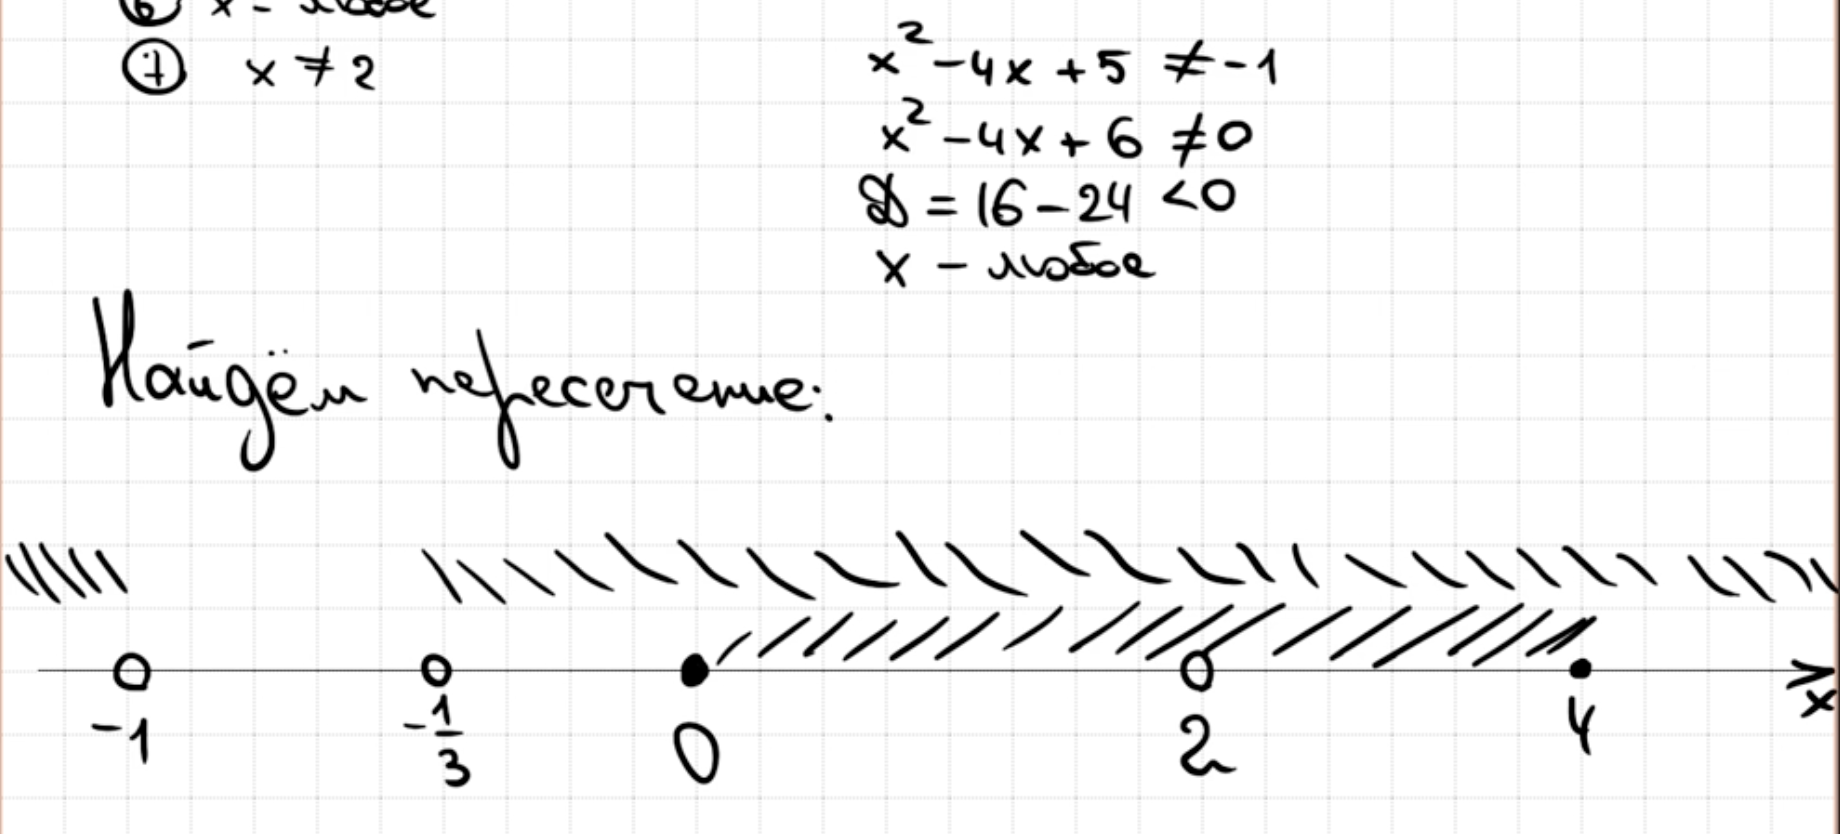 ⑥ x - любое
⑦ x ≠ 2
x² - 4x + 5 ≠ -1
x² - 4x + 6 ≠ 0
D = 16 - 24 < 0
x - любое
Найдём пересечение:
-1 -1/3 0 2 4 x